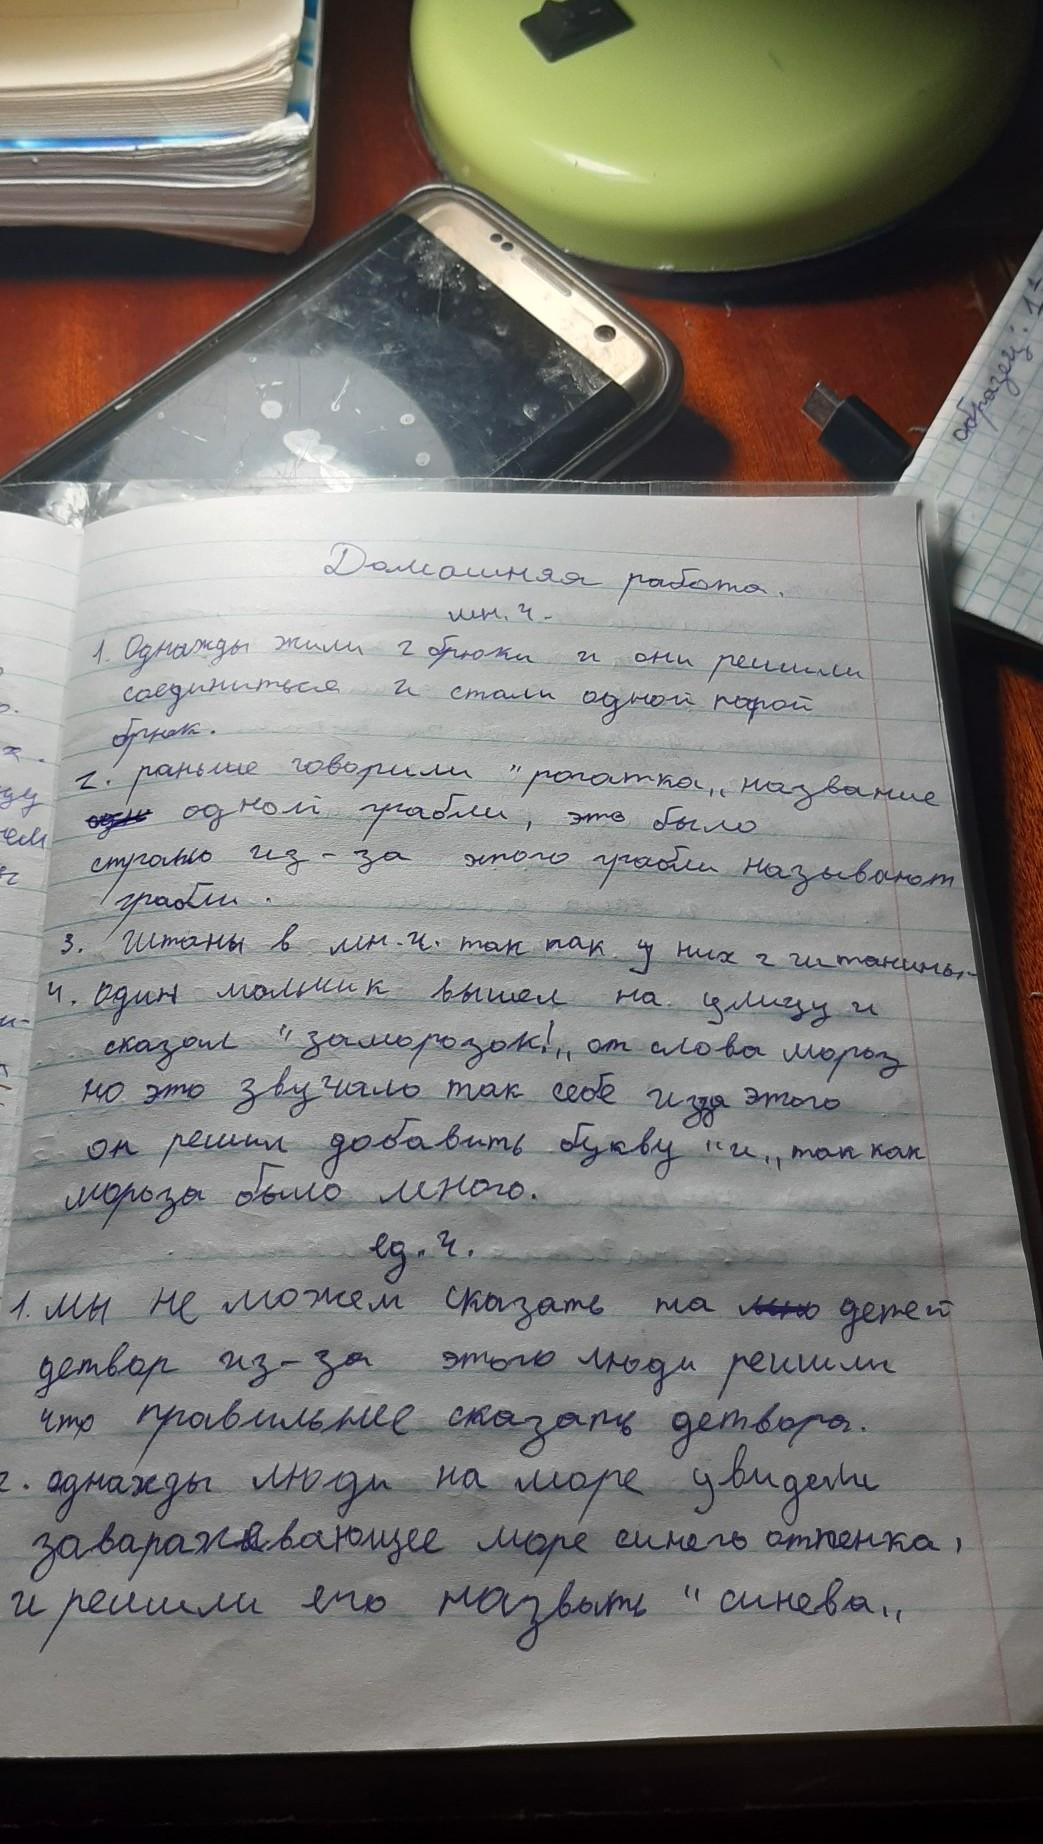 образец: 1
Домашняя работа.
мн. ч.
1. Однажды жили 2 брюки и они решили
соединиться и стали одной парой
брюк.
2. раньше говорили "рогатка„ название
одной грабли, это было
странно из-за этого грабли называют
грабли.
3. Штаны в мн.ч. так как у них 2 штанины.
4. один мальчик вышел на улицу и
сказал "заморозок!„ от слова мороз
но это звучало так себе из за этого
он решил добавить букву "и„ так как
мороза было много.
ед. ч.
1. мы не можем сказать на детей
детвор из-за этого люди решили
что правильнее сказать детвора.
2. однажды люди на море увидели
завараживающее море синего оттенка,
и решили его назвать "синева„